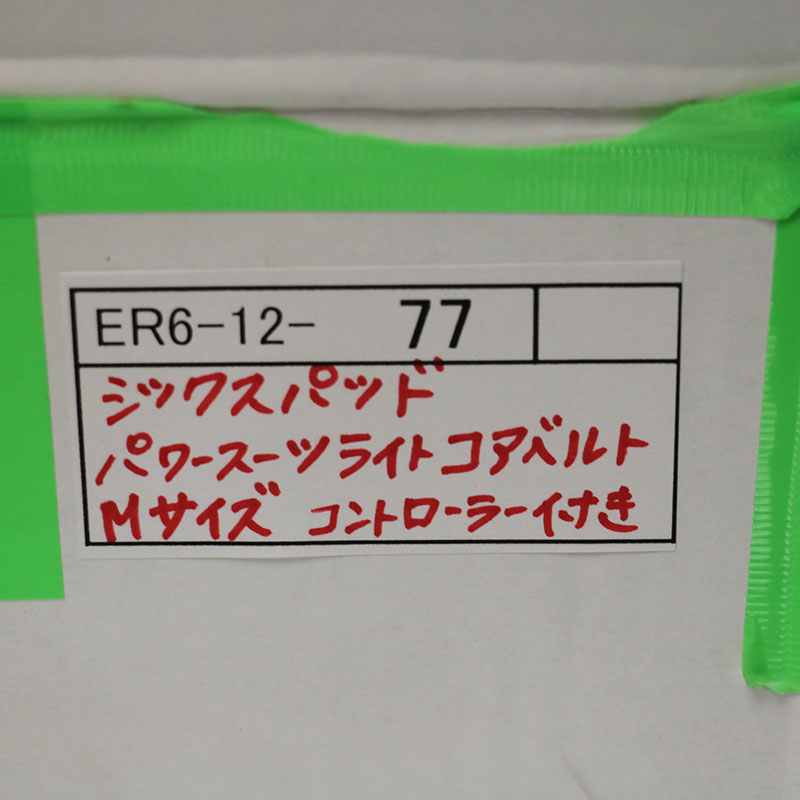 ER6-12- 77
シックスパッド
パワースーツライトコアベルト
Mサイズ コントローラー付き